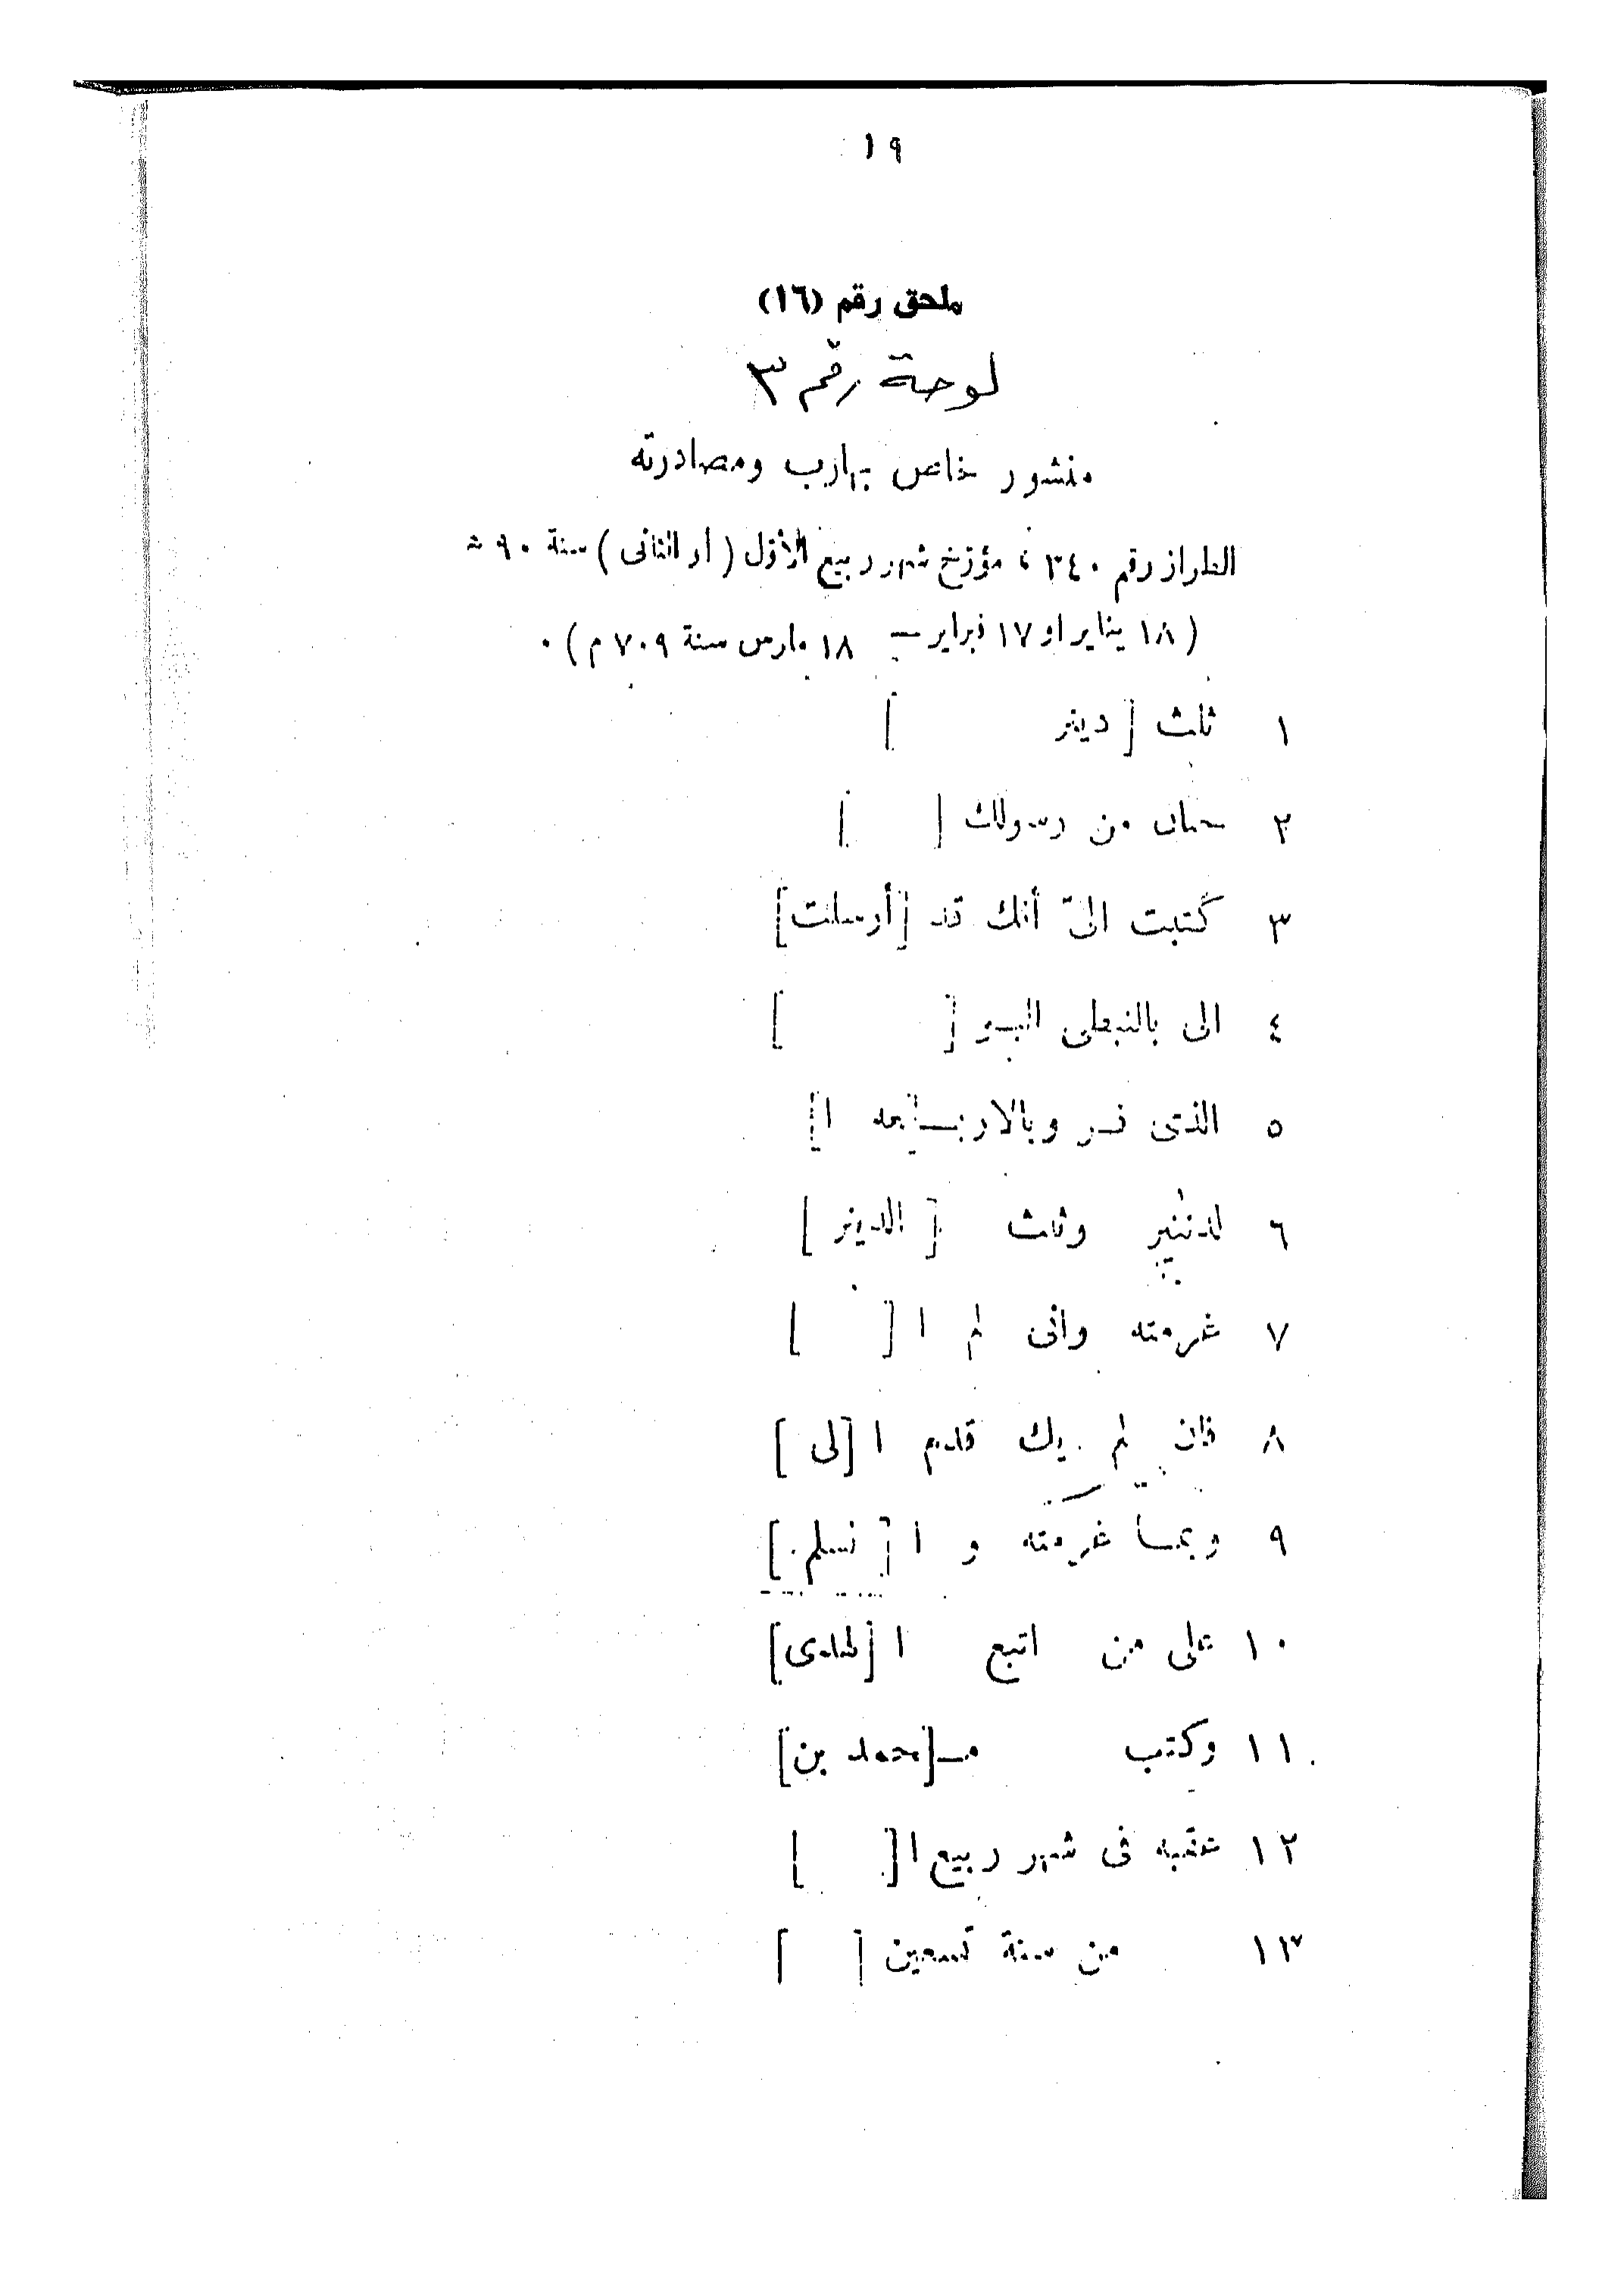 ١٩
ملحق رقم (١٦)
لوحة رقم ٣
منشور خاص بهارب ومصادرته
الطراز رقم ٣٤٠ ، مؤرخ شهر ربيع الأول ( أو الثانى ) سنة ٩٠ هـ
( ١٨ يناير او ١٧ فبراير – ١٨ مارس سنة ٧٠٩ م ) .
١ ثلث [ دينر ]
٢ من رسولك [ ]
٣ كتبت الىّ أنك قد [أرسلت]
٤ الى بالنبطى [ ]
٥ الذى فر وبالاربعه ا[]
٦ لدننير وثلث [ الدينر ]
٧ غرمته وانى لم ا [ ]
٨ فان لم يك قدم ا [لى ]
٩ وبما غرمته و ا [ لسلم ]
١٠ على من اتبع ا [لهدى]
١١ وكتب [محمد بن]
١٢ عقبه فى شهر ربيع ا[ ]
١٣ من سنة تسعين [ ]